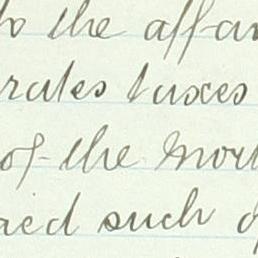 to the affai
rates taxes
of the mort
ried such